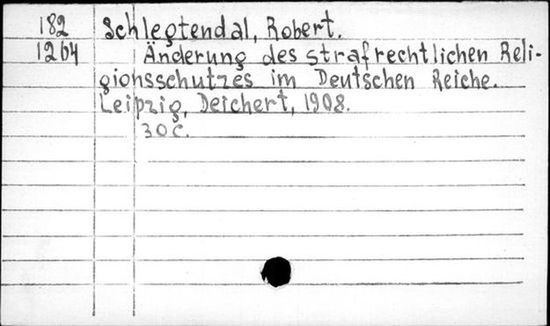 182 Schlegtendal, Robert.
1264 Änderung des strafrechtlichen Reli-
gionsschutzes im Deutschen Reiche.
Leipzig, Deichert, 1908.
30 C.